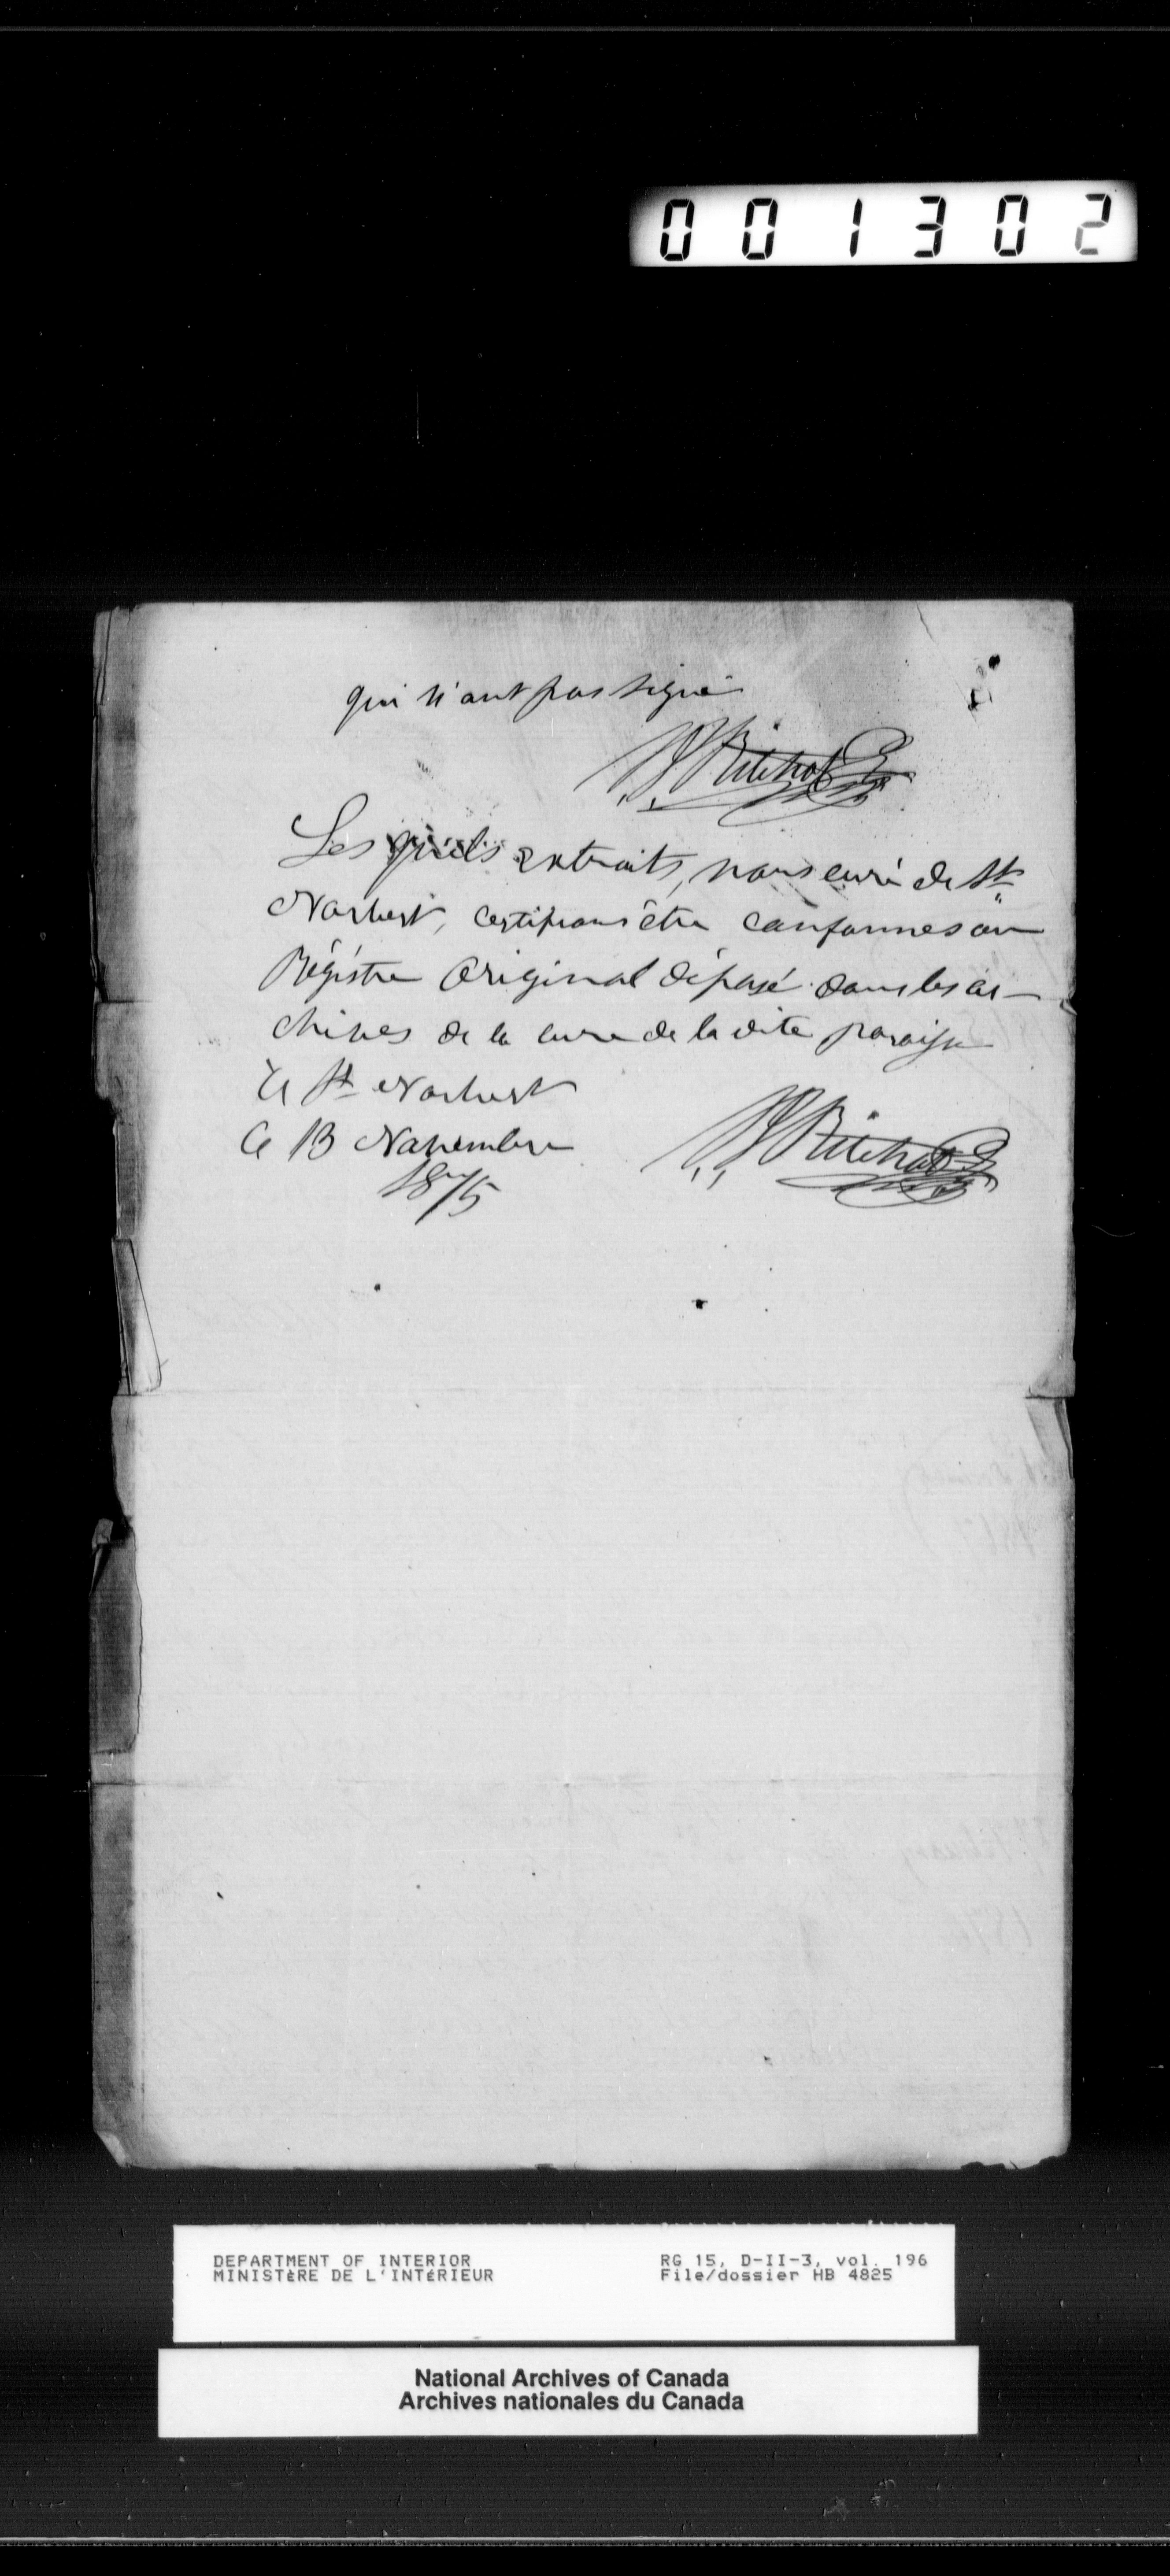 001302
qui n'ont pas signé
N. J. Ritchot Ptre
Les quels extraits, nous curé de St
Norbert, certifions être conformes au
Régistre Original déposé dans les ar-
chives de la cure de la dite paroisse
à St Norbert
Ce 13 Novembre
1875
N. J. Ritchot Ptre
DEPARTMENT OF INTERIOR
MINISTÈRE DE L'INTÉRIEUR
RG 15, D-II-3, vol. 196
File/dossier HB 4825
National Archives of Canada
Archives nationales du Canada